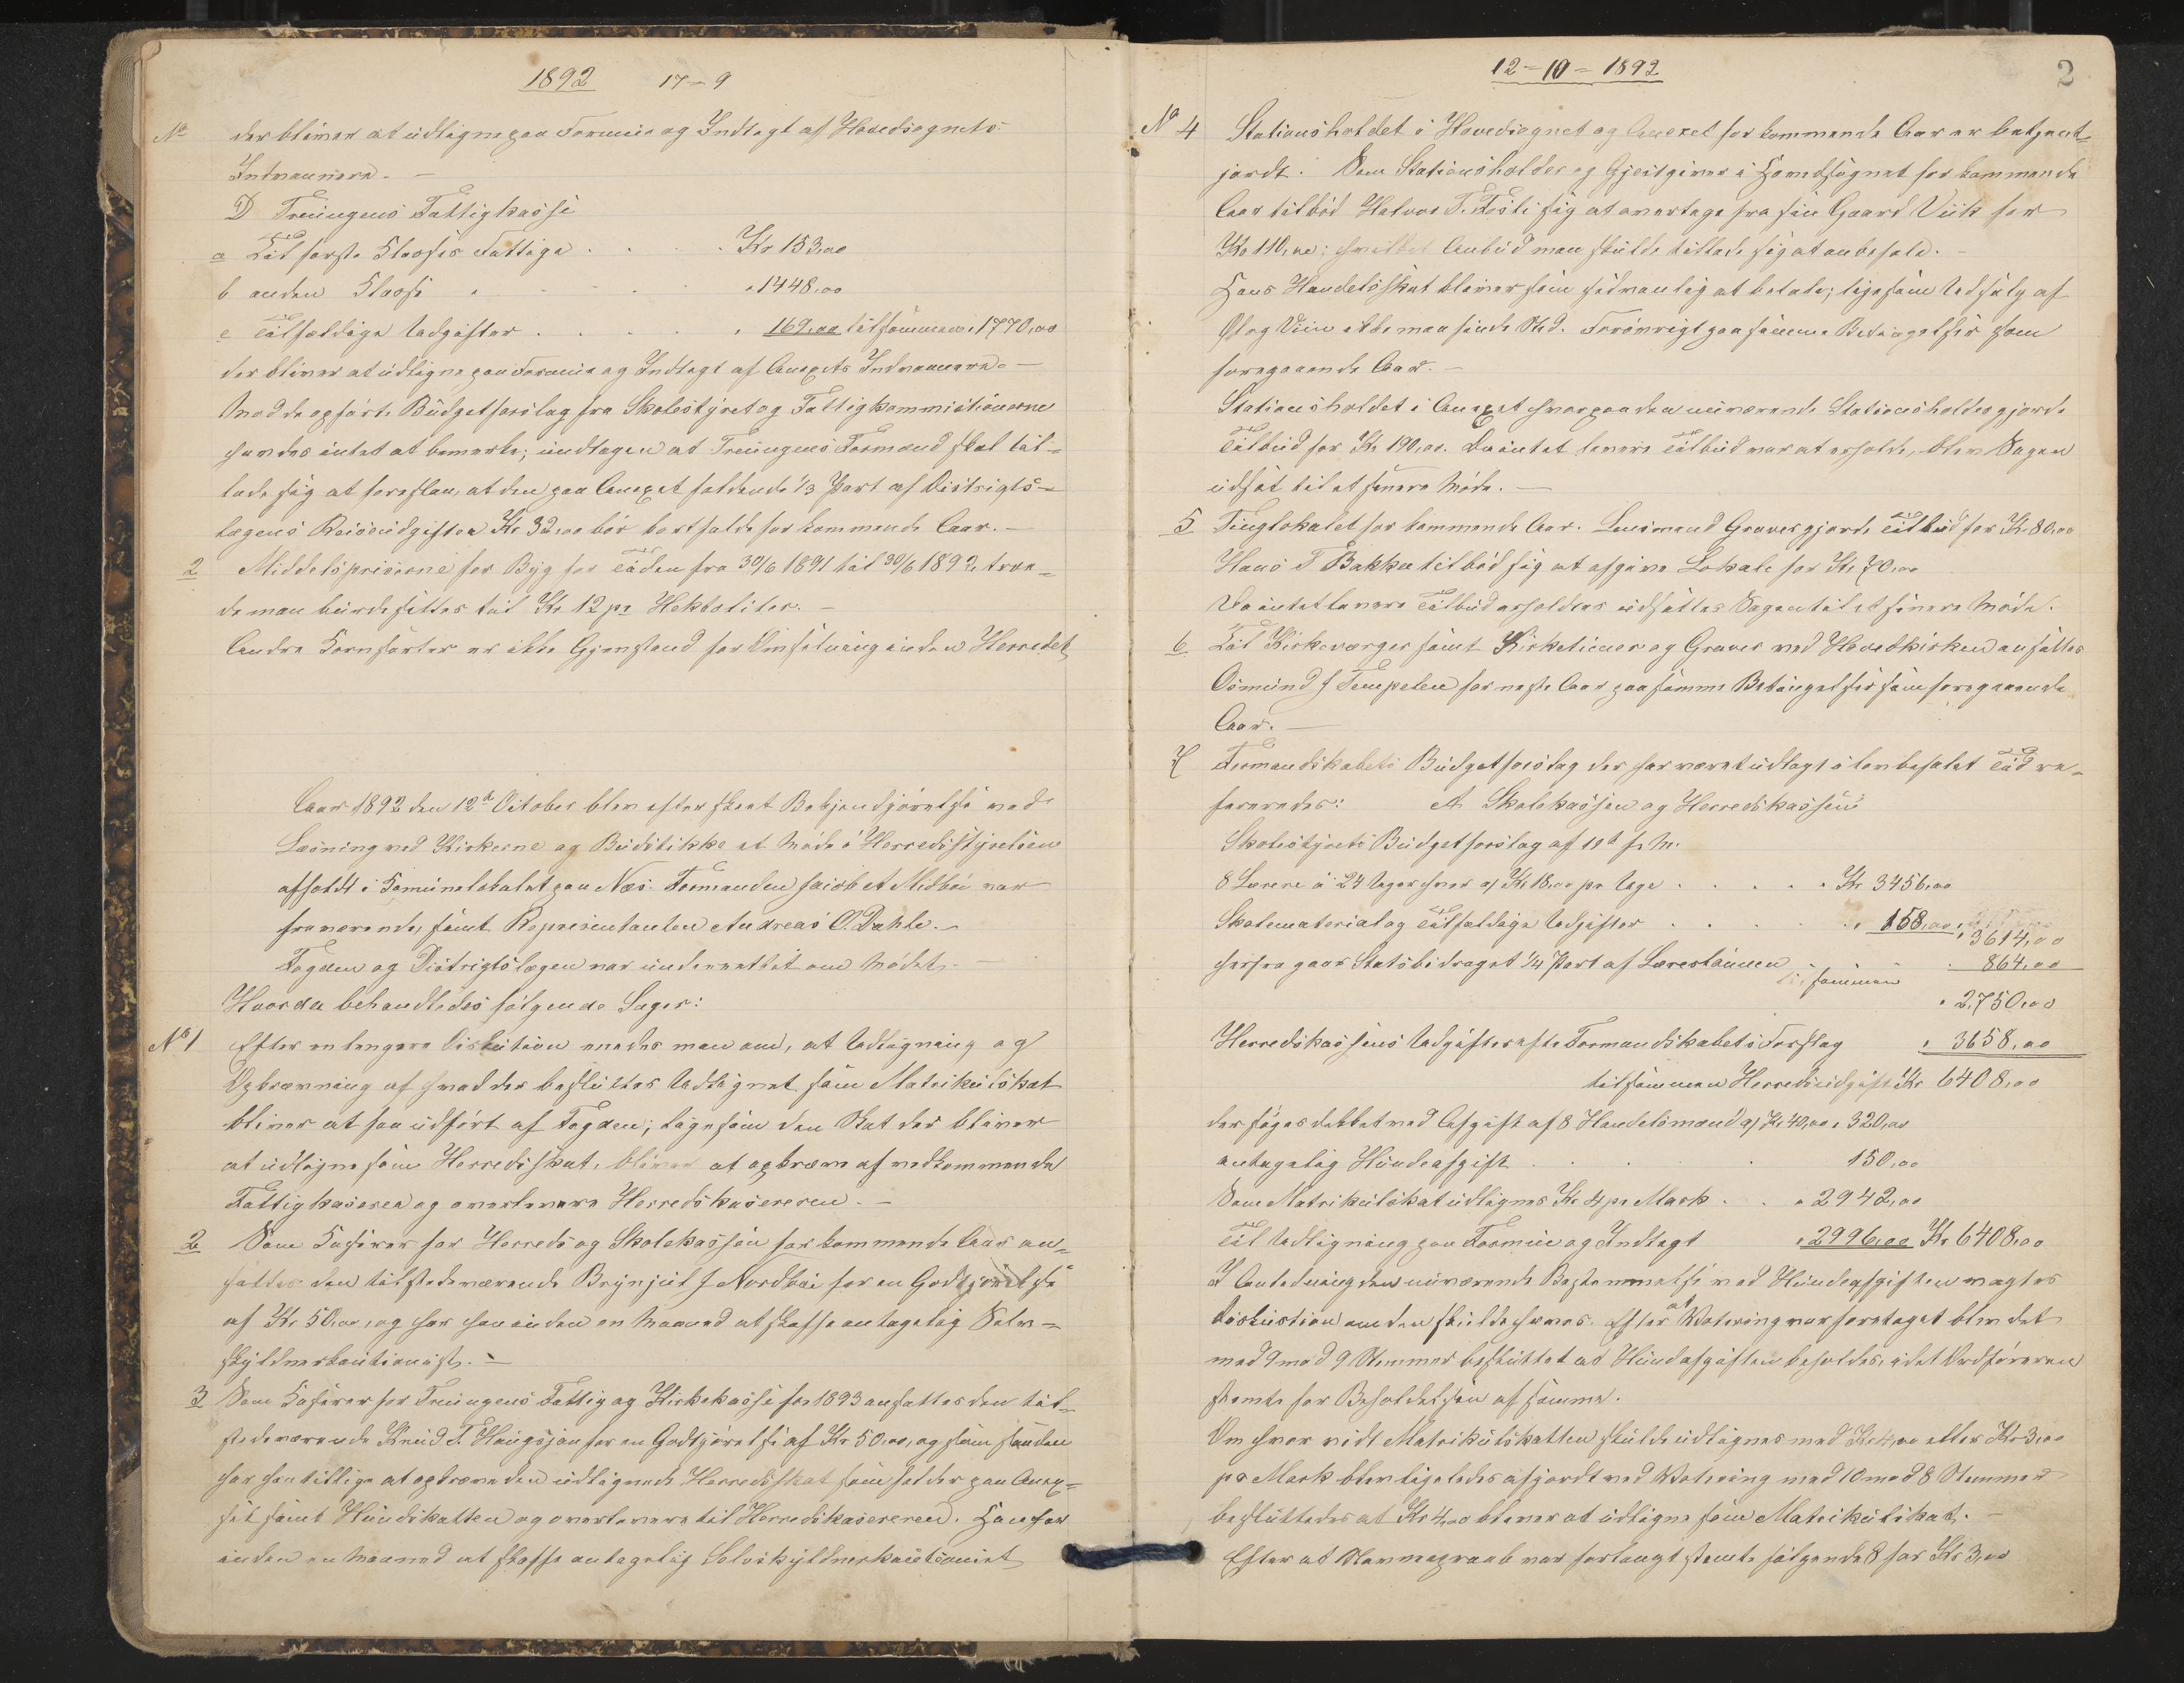 1892 17-9
No der bliver at udligne paa Formue og Indtægt af Hovedsognets
Indvaanere. —
D Treungens Fattigkasse
a Til første Klasses Fattige . . . . Kr 153,00
b anden Klasse " - - - - " 1448,00
c Tilfældige Udgifter . . . . . " 169,00 tilsammen 1770,00
der bliver at udligne paa Formue og Indtægt af Anexets Indvaanere. —
Mod de opførte Budgetforslag fra Skolestyret og Fattigkommissionerne
havdes intet at bemerke; undtagen at Treungens Formænd skal til-
lade sig at foreslaa, at den paa Anexet faldende 1/3 Part af Distrigts-
lægens Reiseudgifter Kr 32,00 bør bortfalde for kommende Aar. —
2 Middelspriserne for Byg for Tiden fra 30/6 1891 til 30/6 1892, troe-
de man burde sættes til Kr 12 pr Hektoliter. —
Andre Kornsorter er ikke Gjenstand for Omsætning inden Herredet
Aar 1892 den 12te October blev efter skeet Bekjendtgjørelse ved
Læsning ved Kirkerne og Budstikke et Møde i Herredsstyrelsen
afholdt i Komunelokalet paa Næs. Formanden Jacob A Midbøe var
fraværende, samt Representanten Andreas O. Dahle. —
Fogden og Distrigtslægen var underrettet om Mødet. —
Hvorda behandledes følgende Sager:
No 1 Efter en længere Diskution enedes man om, at Udligning og
Opkrævning af hvad der besluttes Udlignet som Matrikulskat
bliver at faa udført af Fogden; ligesom den Skat der bliver
at udligne som Herredsskat, bliver at opkræve af vedkommende
Fattigkaserer og overlevere Herredskasereren. —
2 Som Kaserer for Herreds og Skolekassen for kommende Aar an-
sattes den tilstedeværende Brynjul J Nordbøe for en Godtgjørelse
af Kr 50,00, og har han inden en Maaned at skaffe antagelig Selv-
skyldnerkautionist. —
3 Som Kaserer for Treungens Fattig og Kirkekasse for 1893 ansattes den til-
stedeværende Knud T. Haugsjaa for en Godtgjørelse af Kr 50,00, og som saadan
har han tillige at opkræve den udlignede Herredsskat som falder paa Anex-
et samt Hundeskatten og overlevere til Herredskasereren. Han har
inden en Maaned at skaffe antagelig Selvskyldnerkautionist
12-10-1892 2
No 4 Stationsholdet i Hovedsognet og Anexet for kommende Aar er bekjent-
gjordt. Som Stationsholder og Gjestgiver i Hovedsognet for kommende
Aar tilbød Halvor T. Tosti sig at overtage fra sin Gaard Viik for
Kr 110,00; hvilket Anbud man skulde tillade sig at anbefale. —
Hans Handelsskat bliver som sædvanlig at betale; ligesom Udsalg af
Øl og Viin ikke maa finde Sted. Forøvrigt paa samme Betingelser som
foregaaende Aar. —
Stationsholdet i Anexet hvorpaa den nuværende Stationsholder gjorde
Tilbud for Kr 190,00. Da intet lavere Tilbud var at erholde, blev Sagen
udsat til et senere Møde. —
5 Tinglokalet for kommende Aar. Lensmand Graver gjorde Tilbud for Kr 80,00
Hans T Bakka tilbød sig at afgive Lokale for Kr 70,00
Da intet lavere Tilbud erholdtes udsættes Sagen til et senere Møde.
6 Til Kirkeværger samt Kirketiener og Graver ved Hovedkirken ansattes
Osmund J Tempelen for neste Aar paa samme Betingelser som foregaaende
Aar. —
7 Formandskabets Budgetforslag der har været udlagt i lovbefalet Tid re-
fereredes: A Skolekassen og Herredskassen
Skolestyrets Budgetforslag af 10de f. M.
8 Lærere i 24 Uger hver a/ Kr 18,00 pr Uge . . . . . Kr 3456,00
Skolemateriel og Tilfældige Udgifter . . . . " 158,00
" 3614,00
herfra gaar Statsbidraget 1/4 Part af Lærerlønnen " " . 864,00
tilsammen
" 2,750,00
Herredskassens Udgifter efter Formandskabets Forslag " 3658,00
tilsammen Herredsudgift Kr 6408,00
der søges dekket ved Afgift af 8 Handelsmænd a/ Kr 40,00 " 320,00
antagelig Hundeafgift . . . . 150,00
Som Matrikulskat udlignes Kr 4 pr Mark . . " 2942,00
Til Udligning paa Formue og Indtægt " 2996,00 Kr 6408,00
I Anledning den nuværende Bestemmelse med Hundeafgiften vagtes
Diskustion om den skulde hæves. Efter at Votering var foretaget blev det
med 9 mod 9 Stemmer besluttet at Hundeafgiften beholdes, idet Ordføreren
stemte for Beholdelsen af samme.
Om hvor vidt Matrikulskatten skulde udlignes med Kr 4,00 eller Kr 3,00
pr Mark blev ligeledes afgjordt ved Votering med 10 mod 8 Stemmer
besluttedes at Kr 4,00 bliver at udligne som Matrikulskat. —
Efter at Navneopraab var forlangt stemte følgende 8 for Kr 3,00